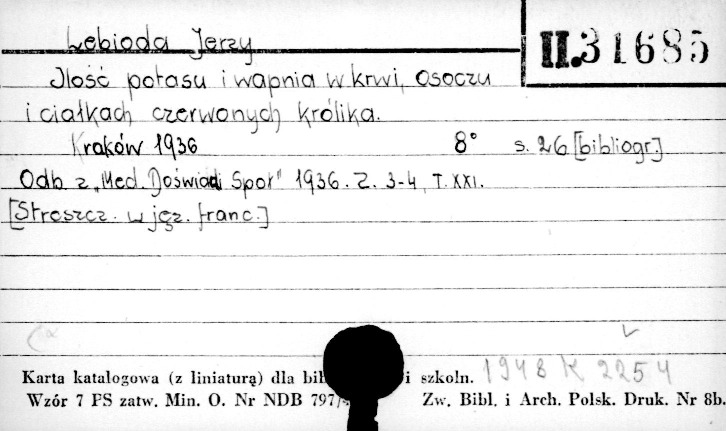 Lebioda Jerzy
II.31685
Ilość potasu i wapnia w krwi, osoczu
i ciałkach czerwonych królika.
Kraków 1936 8° s. 26 [bibliogr.]
Odb. z „Med. Doświad. Społ" 1936. Z. 3-4, T. XXI.
[Streszcz. w jęz. franc.]
1948 K 2254
Karta katalogowa (z liniaturą) dla bib i szkoln.
Wzór 7 PS zatw. Min. O. Nr NDB 797/ Zw. Bibl. i Arch. Polsk. Druk. Nr 8b.